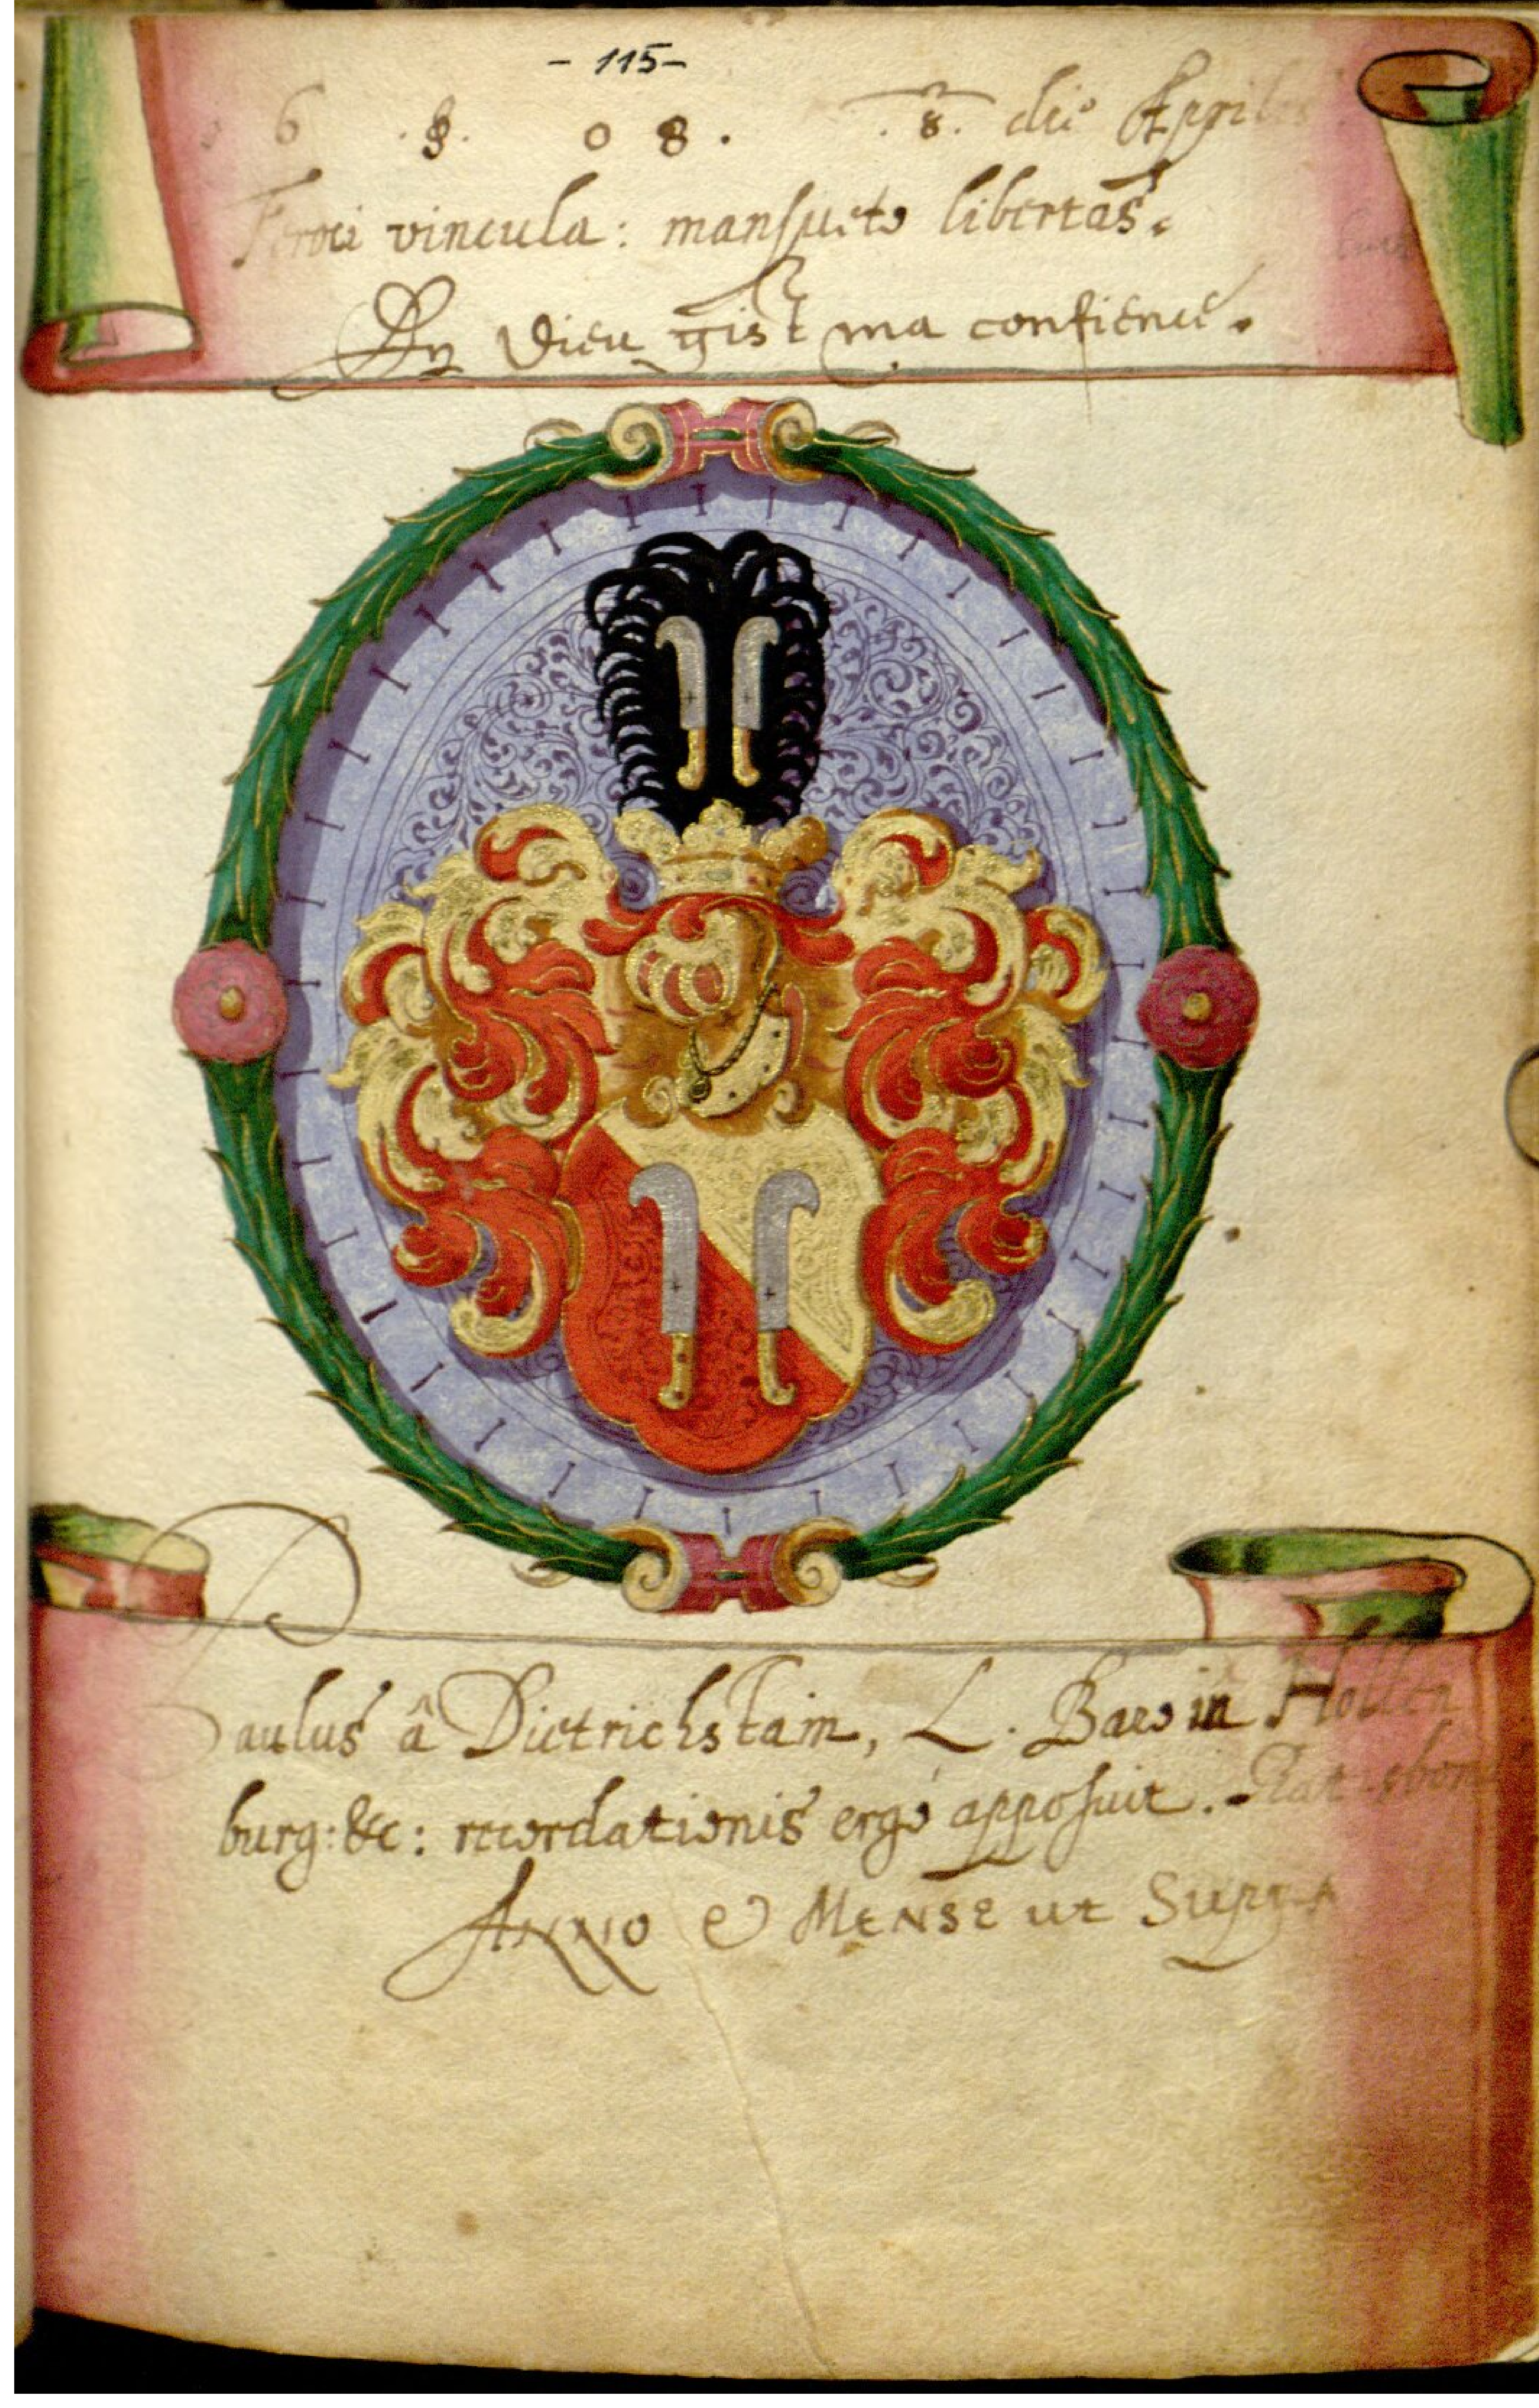 - 115 -
6 . § . 0 8 . . 8 . die Aprilis
Feroci vincula : mansueto libertas .
En Dieu gist ma confience .
Paulus â Dietrichstain , L . Baro in Hollen
burg : &c : recordationis ergò apposuit .
Anno & Mense ut Supra